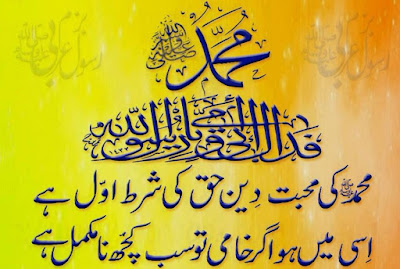 محمد ﷺ
فداك ابي و امي يا رسول الله
محمدﷺ کی محبت دِین حق کی شرط اوّل ہے
اِسی میں ہو اگر خامی تو سب کچھ نا مکمل ہے